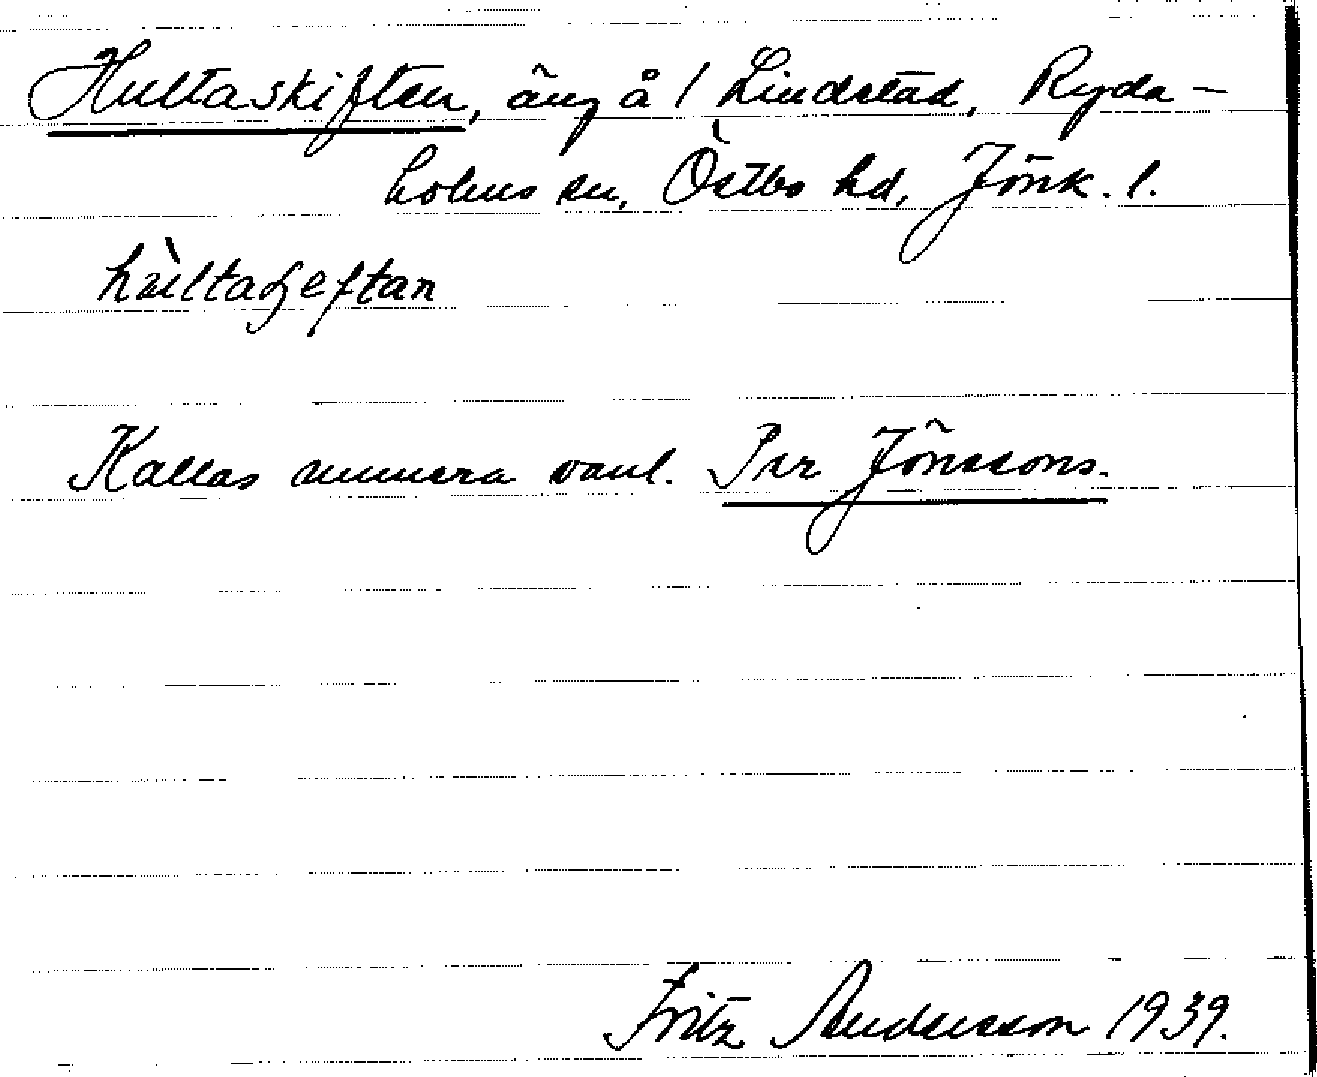 Hultaskiften, äng å 1 Lindstad, Ryda-
holms sn, Östbo hd, Jönk. l.
Kallas numera vanl. Per Jönssons.
Fritz Andersson 1939.